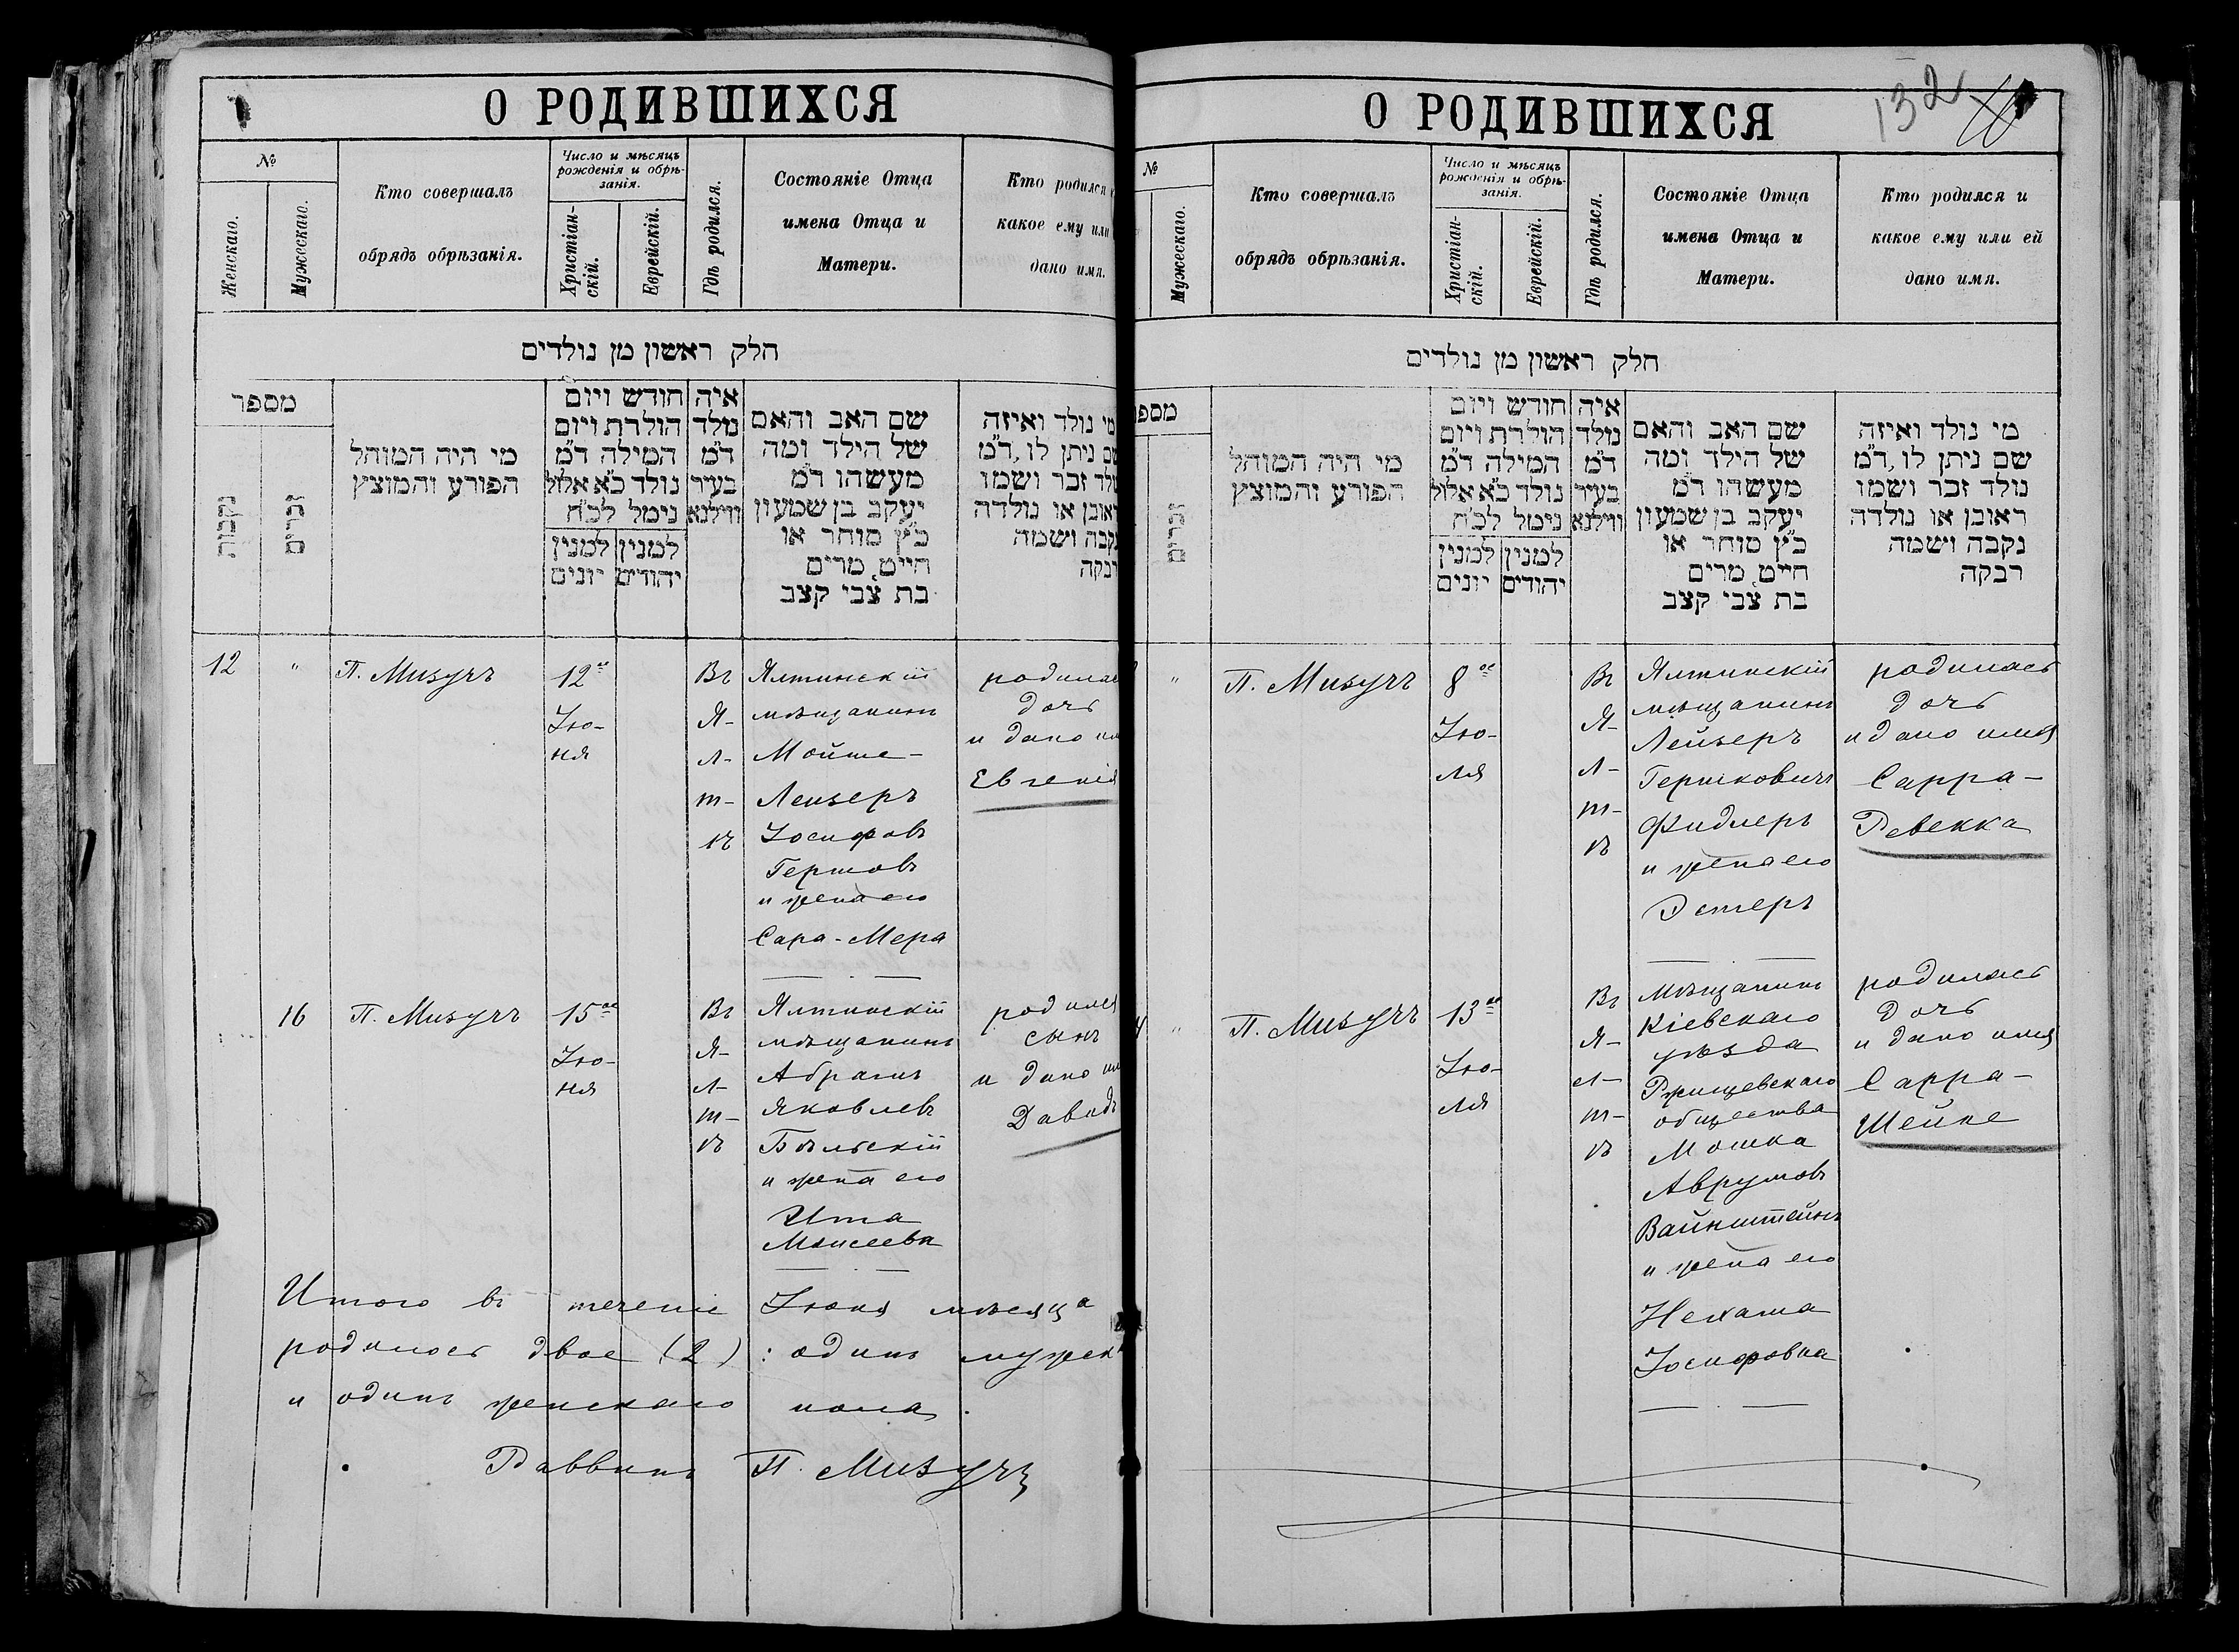 О РОДИВШИХСЯ
№
Женскаго.
Мужескаго.
Кто совершалъ
обрядъ обрѣзанія.
Число и мѣсяцъ
рожденія и обрѣ-
занія.
Христіан-
скій.
Еврейскій.
Гдѣ родился.
Состояніе Отца
имена Отца и
Матери.
Кто родился
какое ему или
дано имя.
חלק ראשון מן נולדים
מספר
נקבות
זכרים
מי היה המוהל
הפורע והמוצץ
חודש ויום
הולדת ויום
המילה ד״מ
נולד כ״א אלול
נימל לכ״ח
למנין למנין
יהודים יונים
איה
נולד
ד״מ
בעיר
ווילנא
שם האב והאם
של הילד ומה
מעשהו ד״מ
יעקב בן שמעון
כ״ץ סוחר או
חייט, מרים
בת צבי קצב
מי נולד ואיזה
שם ניתן לו, ד״מ
נולד זכר ושמו
ראובן או נולדה
נקבה ושמה
12 " П. Мизучъ
12го
Ію-
ня
Въ
Я-
л-
т-
ѣ
Ялтинскій
мѣщанинъ
Мойше-
Лейзеръ
Іосифовъ
Гершовъ
и жена его
Сара-Мера
родилась
дочь
и дано
Евгенія
16 П. Мизучъ
15го
Ію-
ня
Въ
Я-
л-
т-
ѣ
Ялтинскій
мѣщанинъ
Абрамъ
Яковлевъ
Бѣльскій
и жена его
Ита
Моисеева
родился
сынъ
и дано
Давидъ
Итого въ теченіе Іюня мѣсяца
родилось двое (2) : одинъ мужск
и одинъ женскаго пола.
Раввинъ П. Мизучъ
132
О РОДИВШИХСЯ
№
Мужескаго.
Кто совершалъ
обрядъ обрѣзанія.
Число и мѣсяцъ
рожденія и обрѣ-
занія.
Христіан-
скій.
Еврейскій.
Гдѣ родился.
Состояніе Отца
имена Отца и
Матери.
Кто родился и
какое ему или ей
дано имя.
חלק ראשון מן נולדים
מספר
זכרים
מי היה המוהל
הפורע והמוצץ
חודש ויום
הולדת ויום
המילה ד״מ
נולד כ״א אלול
נימל לכ״ח
למנין למנין
יהודים יונים
איה
נולד
ד״מ
בעיר
ווילנא
שם האב והאם
של הילד ומה
מעשהו ד״מ
יעקב בן שמעון
כ״ץ סוחר או
חייט, מרים
בת צבי קצב
מי נולד ואיזה
שם ניתן לו, ד״מ
נולד זכר ושמו
ראובן או נולדה
נקבה ושמה
רבקה
" П. Мизучъ
8го
Ію-
ля
Въ
Я-
л-
т-
ѣ
Ялтинскій
мѣщанинъ
Лейзеръ
Гершковичъ
Фидлеръ
и жена его
Эстеръ
родилась
дочь
и дано имя
Сарра-
Ревекка
4 " П. Мизучъ
13го
Ію-
ля
Въ
Я-
л-
т-
ѣ
Мѣщанинъ
Кіевскаго
уѣзда
Ржищевскаго
общества
Мошка
Аврумовъ
Вайнштейнъ
и жена его
Нехама
Іосифовна
родилась
дочь
и дано имя
Сарра-
Шейне